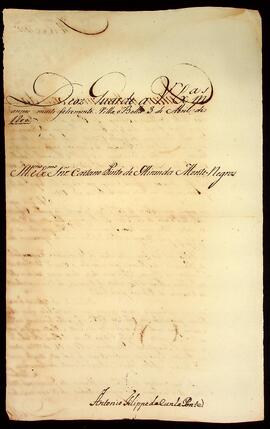 Deos Guarde a V. Ex.ª m.s
annos muito felismente. Villa Bella 3 de Abril de
Ill.mo e Ex.mo Snr. Caetano Pinto de Miranda Monte-Negro
Antonio Filippe da Cunha Ponte